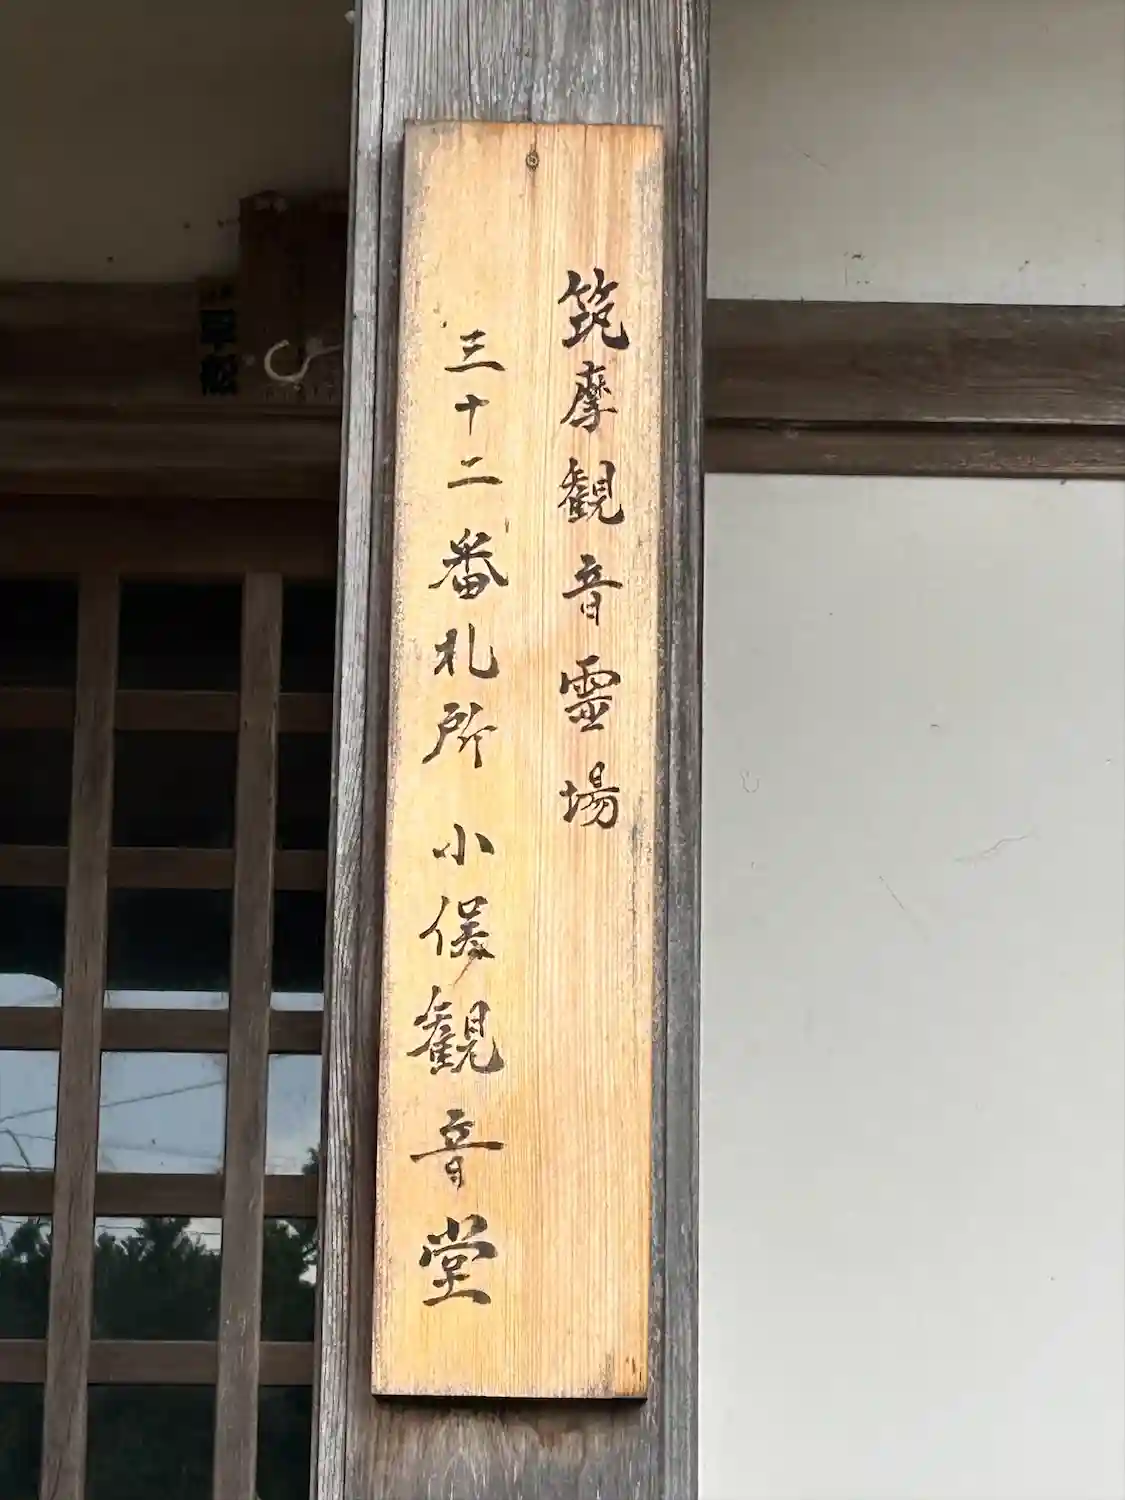 筑摩観音霊場
三十二番札所 小俣観音堂